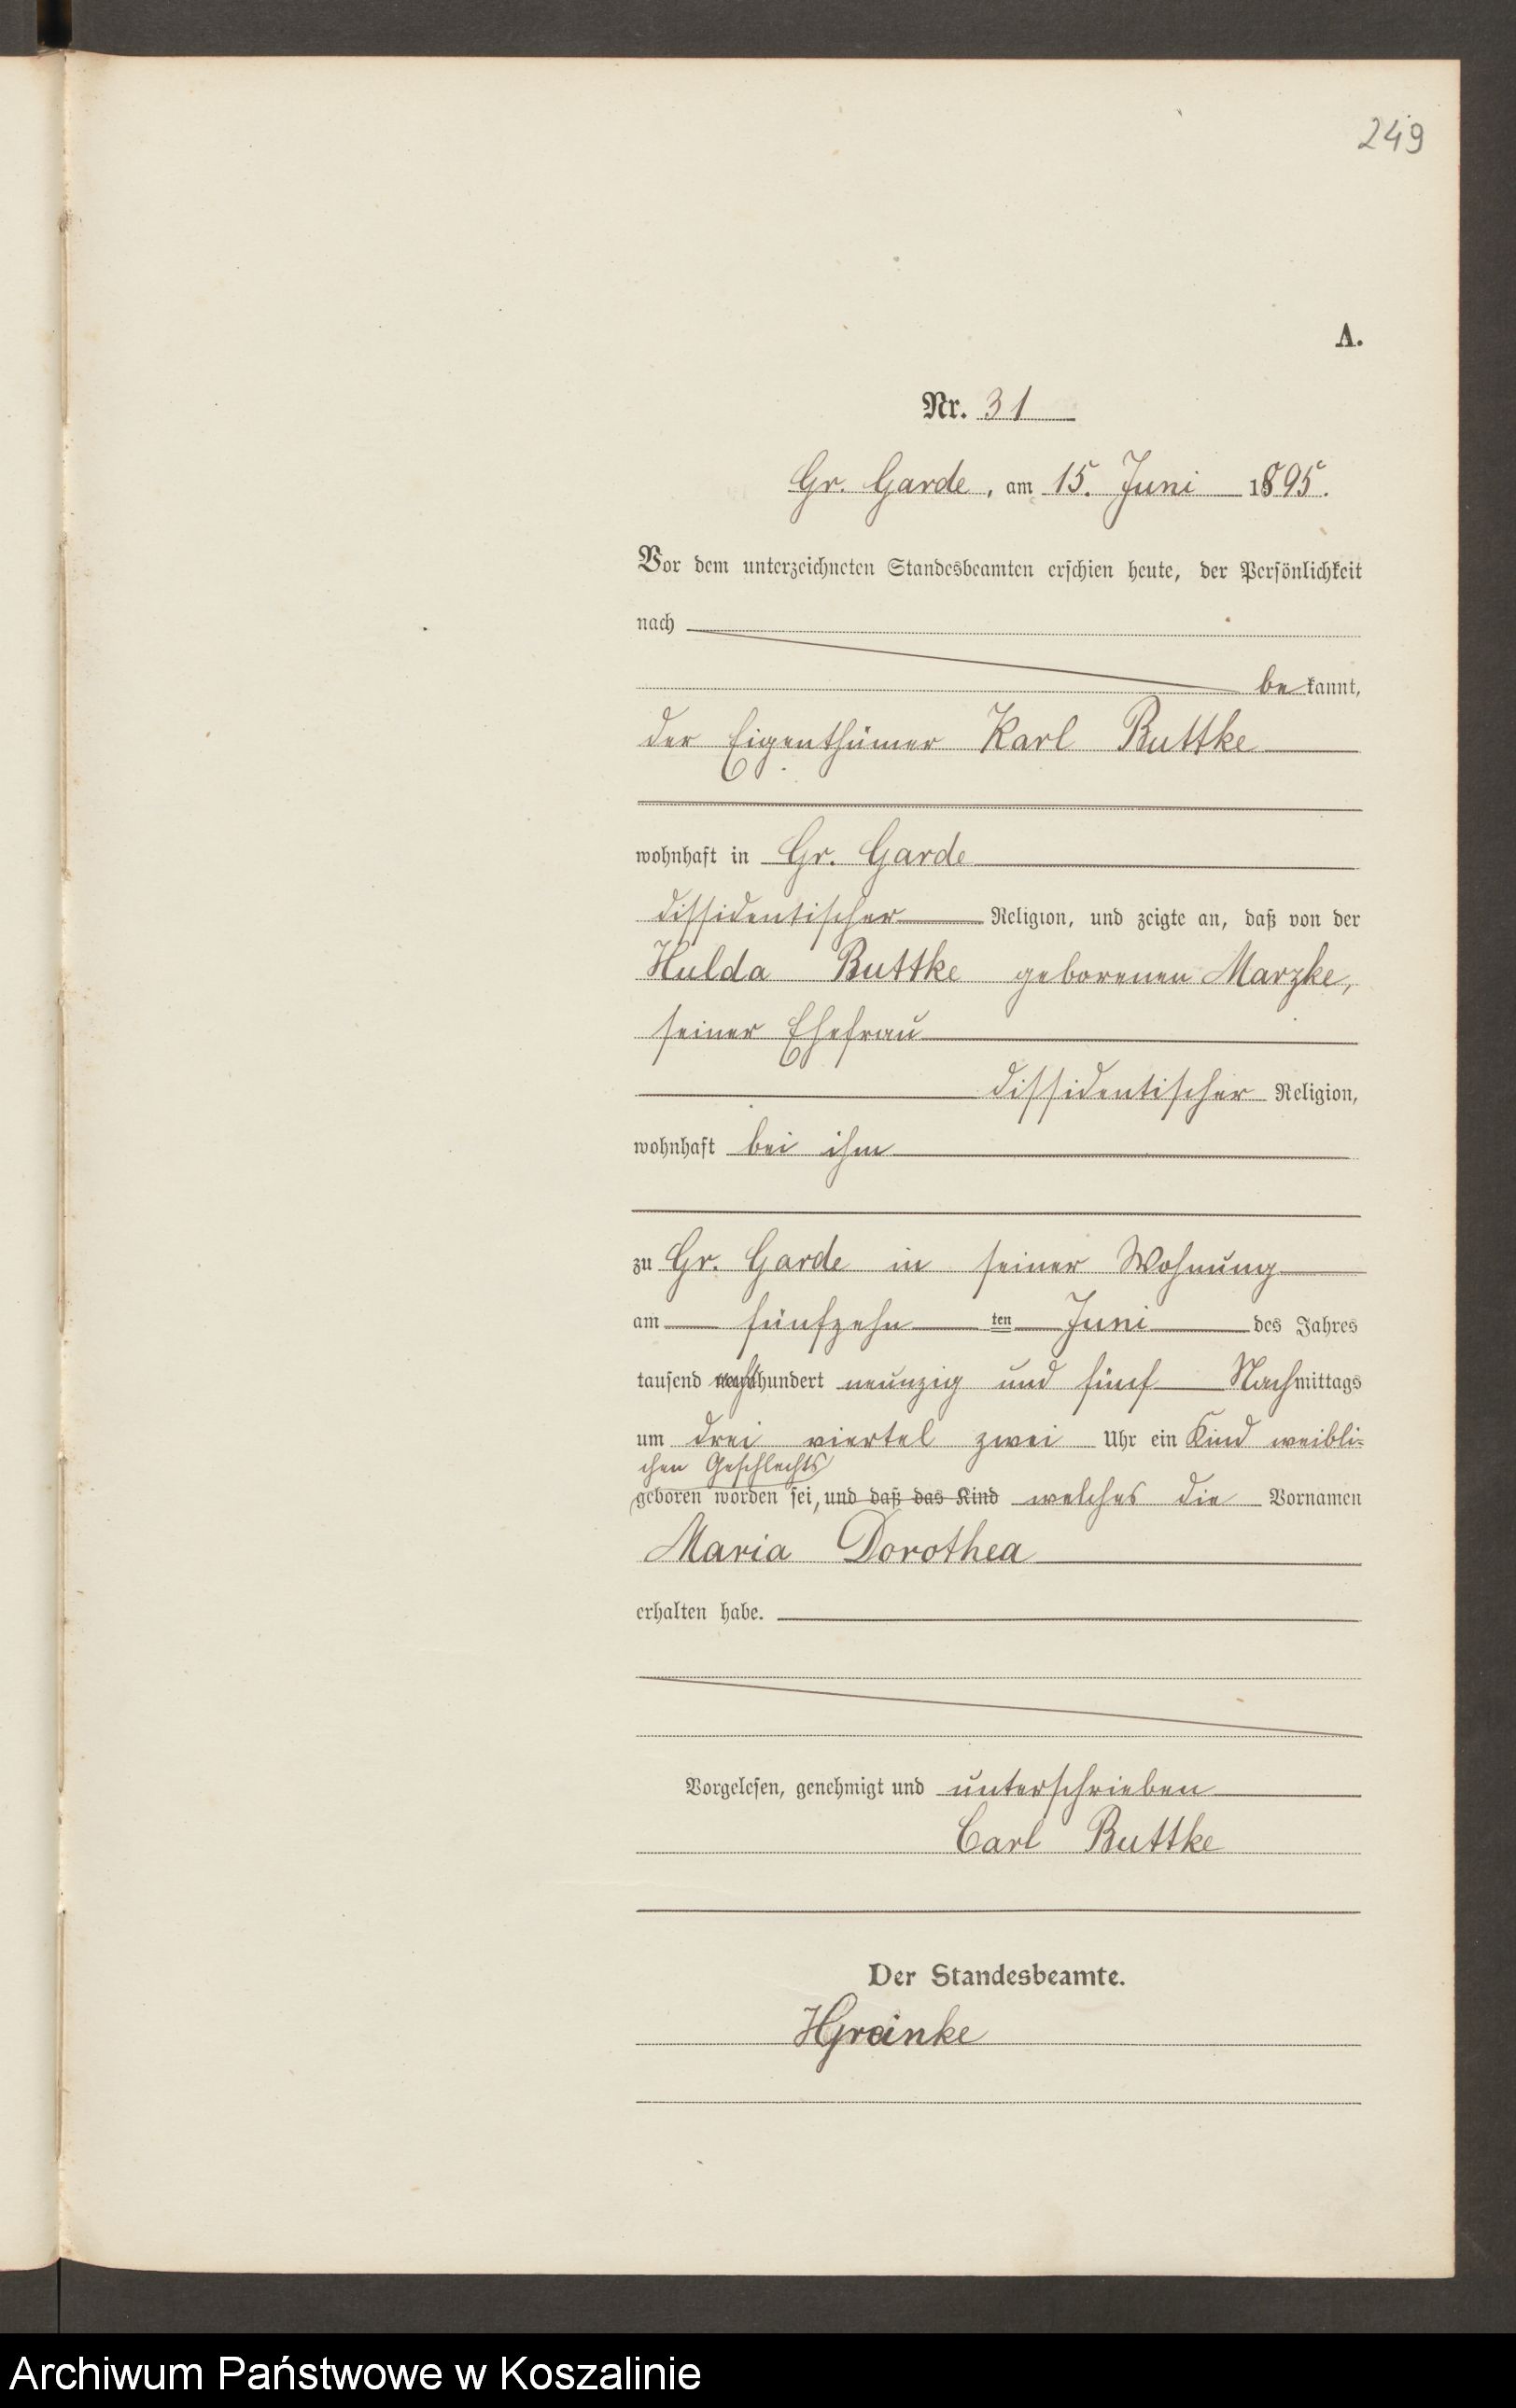 249
A.
Nr. 31
Gr. Garde, am 15. Juni 1895.
Vor dem unterzeichneten Standesbeamten erschien heute, der Persönlichkeit
nach
bekannt,
der Eigenthümer Karl Buttke
wohnhaft in Gr. Garde
dissidentischer Religion, und zeigte an, daß von der
Hulda Buttke geborenen Marzke,
seiner Ehefrau
dissidentischer Religion,
wohnhaft bei ihm
zu Gr. Garde in seiner Wohnung
am fünfzehn ten Juni des Jahres
tausend achthundert neunzig und fünf Nachmittags
um drei viertel zwei Uhr ein Kind weibli-
chen Geschlechts
geboren worden sei, und daß das Kind welches die Vornamen
Maria Dorothea
erhalten habe.
Vorgelesen, genehmigt und unterschrieben
Carl Buttke
Der Standesbeamte.
HGreinke
Archiwum Państwowe w Koszalinie